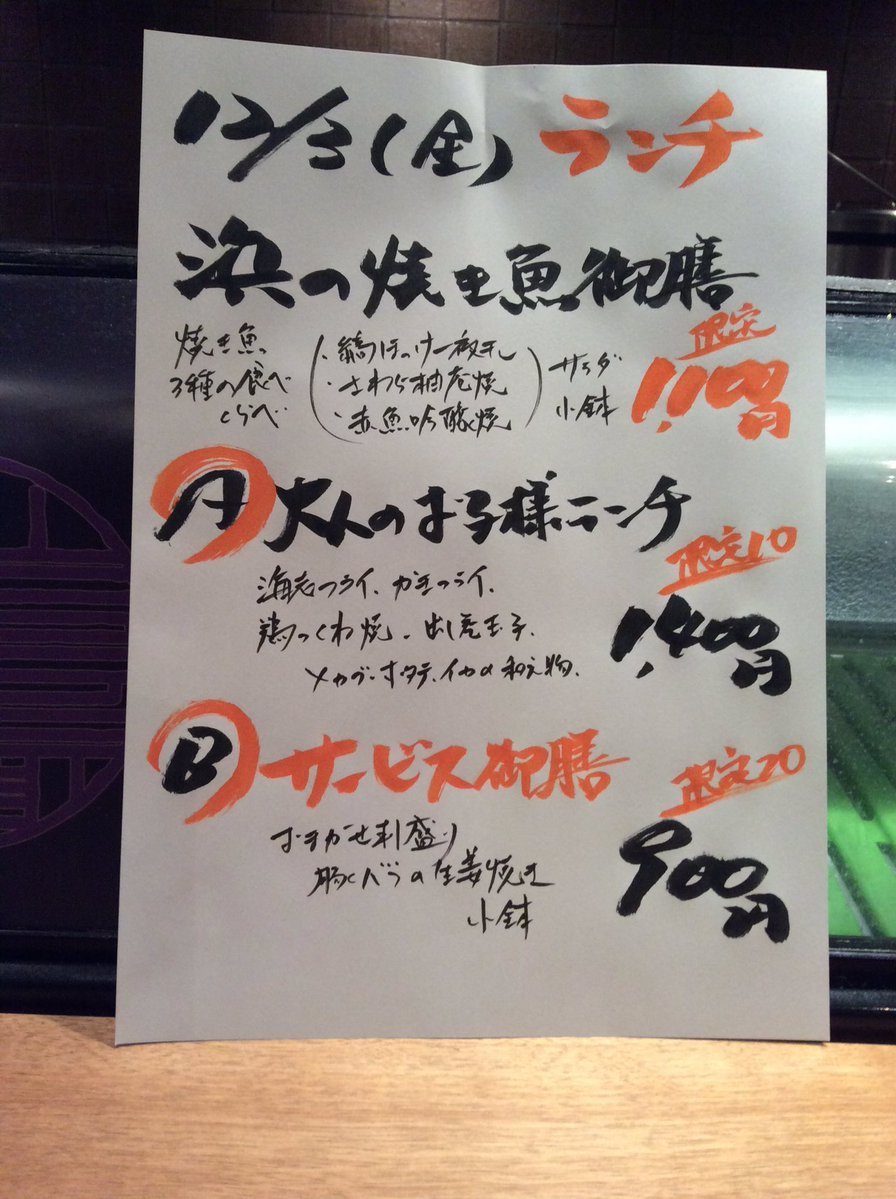 12/3(金)ランチ
浜の焼き魚御膳
焼き魚
3種の食べ
くらべ
・縞ほっけ一夜干し
・さわら柚庵焼
・赤魚吟醸焼
サラダ
小鉢
限定
1,100円
A 大人のお子様ランチ
限定10
海老フライ、かきフライ、
鶏つくね焼、出し巻玉子、
メカブ・ホタテ、イカの和え物、
1,400円
B サービス御膳
限定20
おまかせ刺盛り
豚バラの生姜焼き
小鉢
900円